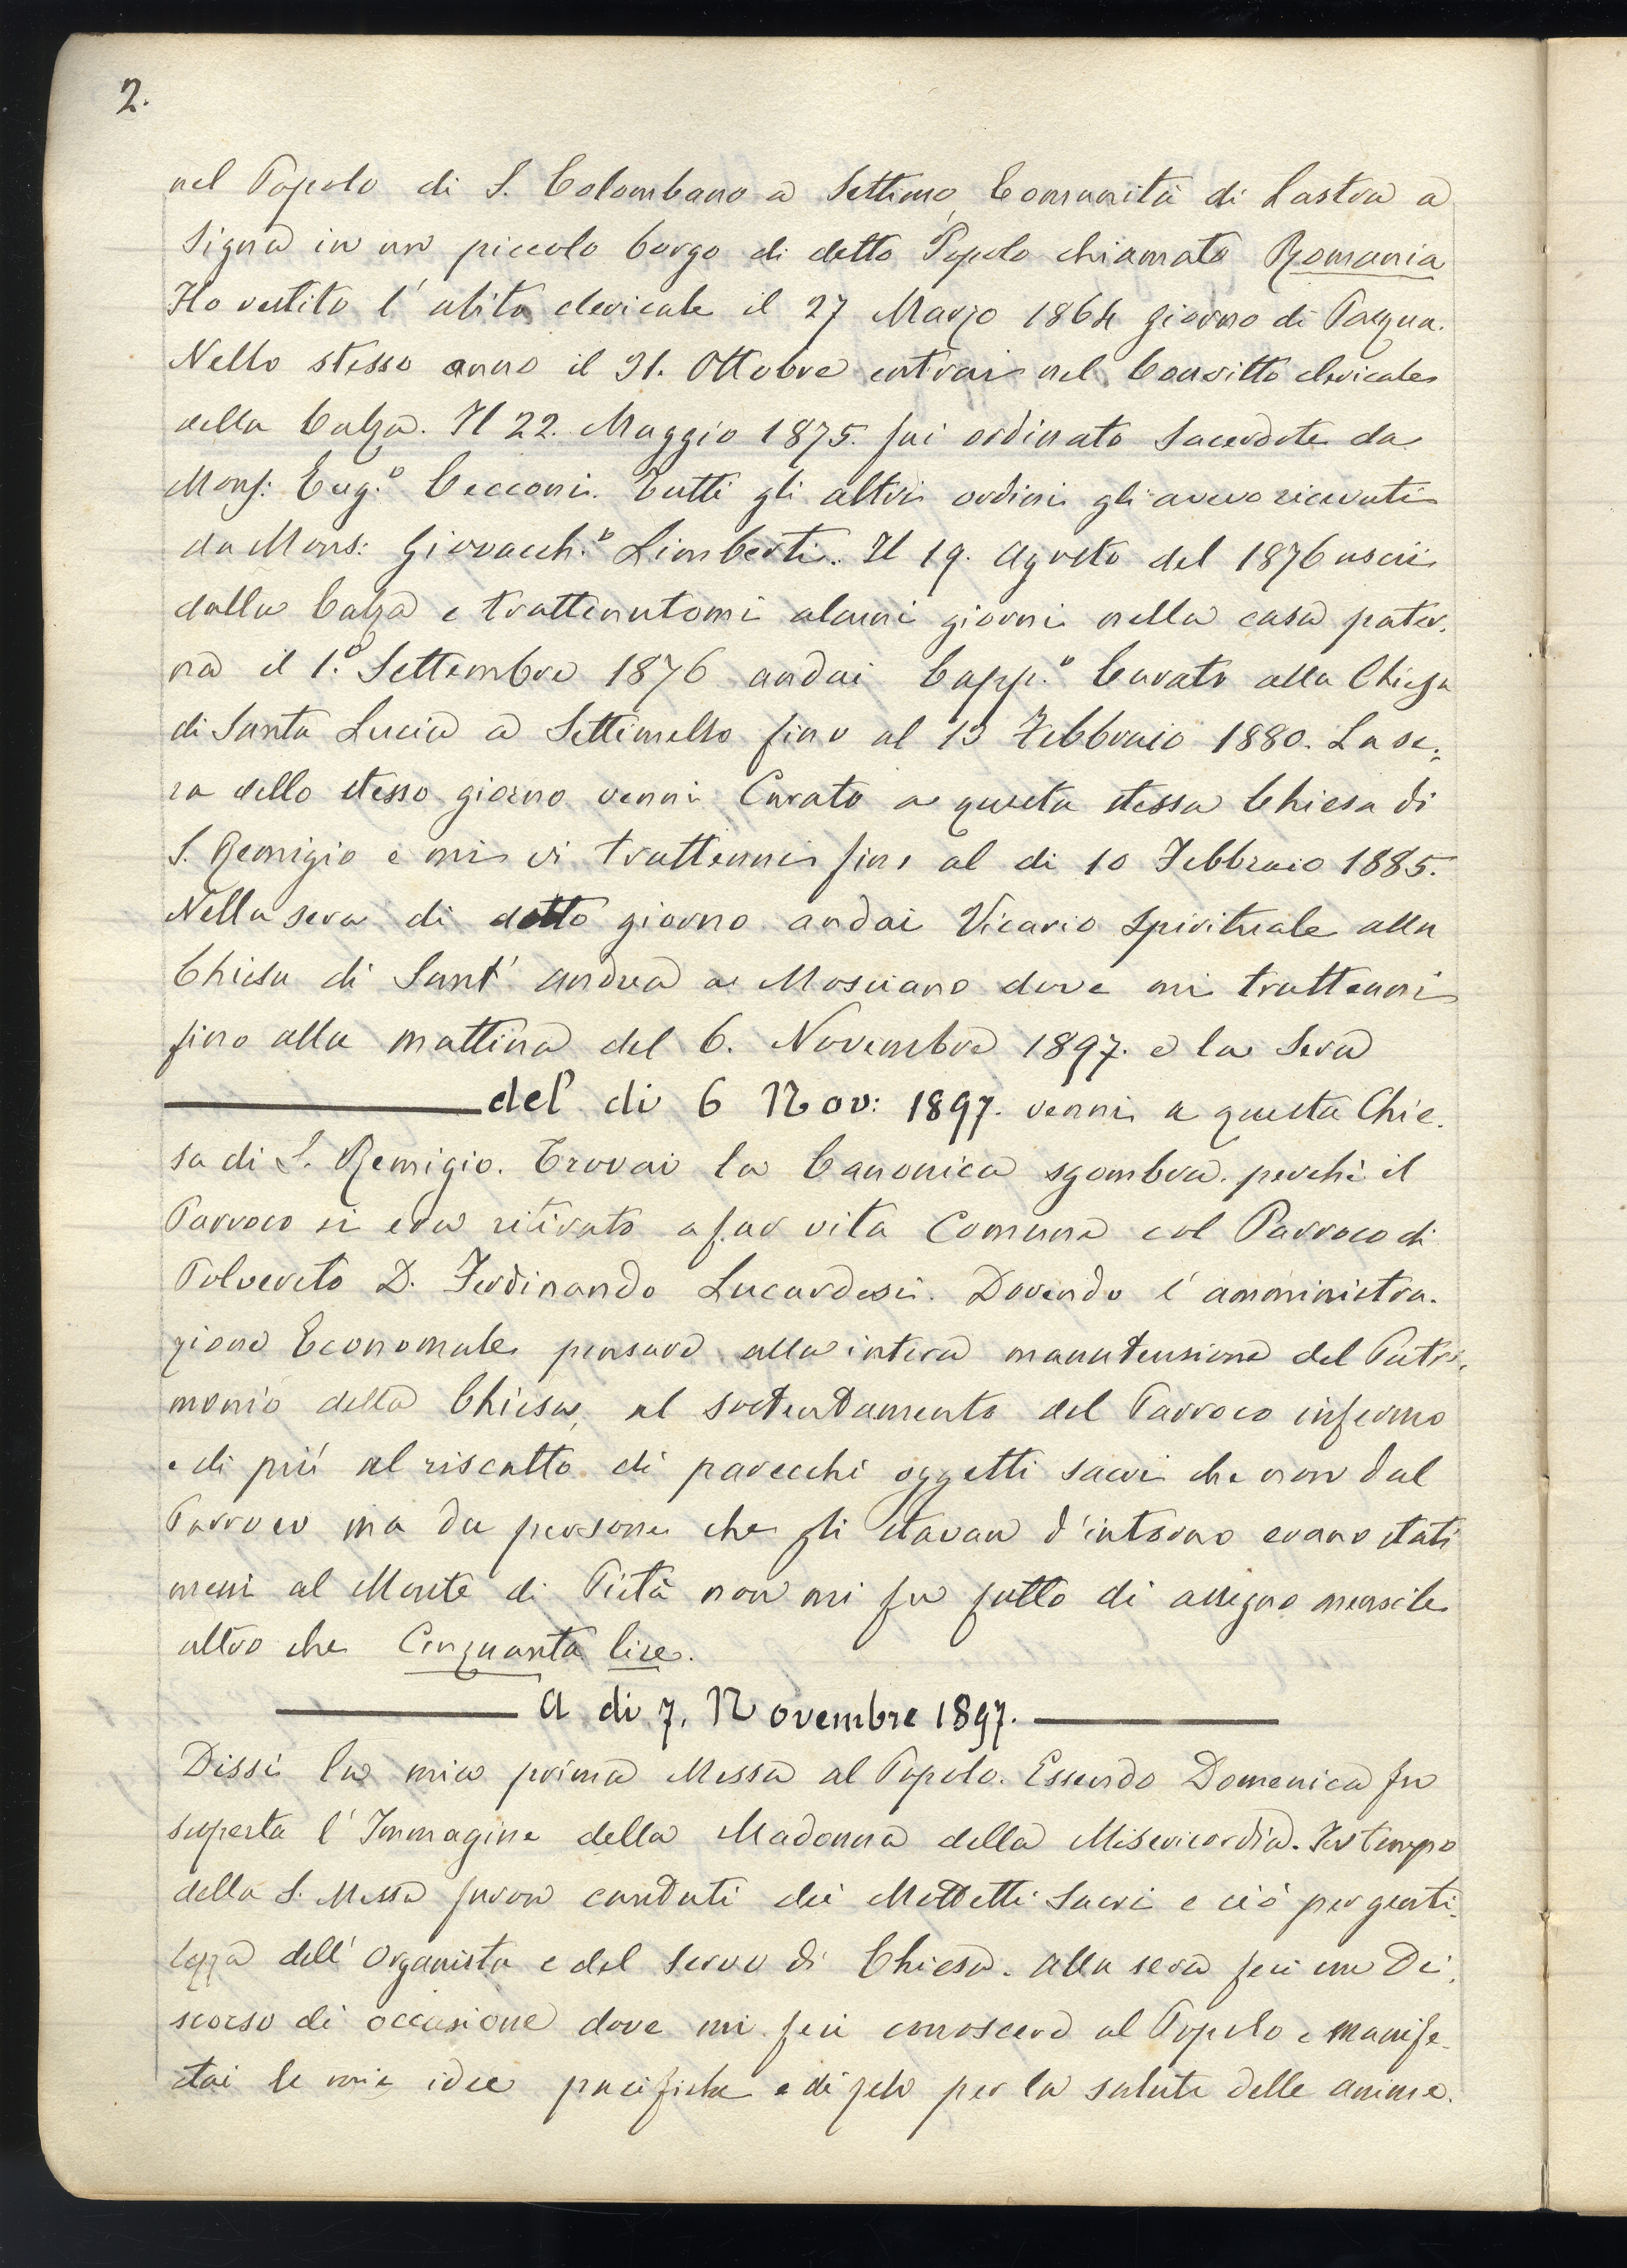 2.
nel Popolo di S. Colombano a Settimo, Comunità di Lastra a
Signa in un piccolo borgo di detto Popolo chiamato Romania
Ho vestito l'abito clericale il 27 Marzo 1864 giorno di Pasqua.
Nello stesso anno il 31. Ottobre entrai nel Convitto clericale
della Calza. Il 22. Maggio 1875. fui ordinato Sacerdote da
Mons: Eug.o Cecconi. Tutti gli altri ordini gli avevo ricevuti
da Mons: Giovacch.o Limberti. Il 19. Agosto del 1876 uscii
dalla Calza e trattenutomi alcuni giorni nella casa pater-
na il 1.o Settembre 1876 andai Capp.o Curato alla Chiesa
di Santa Lucia a Settimello fino al 13 Febbraio 1880. La se-
ra dello stesso giorno venni Curato a questa stessa Chiesa di
S. Remigio e mi vi trattenni fino al di 10 Febbraio 1885.
Nella sera di detto giorno andai Vicario Spirituale alla
Chiesa di Sant' Andrea a Mosciano dove mi trattenni
fino alla mattina del 6. Novembre 1897. e la Sera
del di 6 Nov: 1897. venni a questa Chie-
sa di S. Remigio. Trovai la Canonica sgombra. perchè il
Parroco si era ritirato a far vita Comune col Parroco di
Polvereto D. Ferdinando Lucardesi. Dovendo l'amministra-
zione Economale pensare alla intera manutensione del Patri-
monio della Chiesa, al sostentamento del Parroco infermo
e di più al riscatto di parecchi oggetti sacri che non dal
Parroco ma da persone che gli stavan d'intorno erano stati
messi al Monte di Pietà non mi fu fatto di assegno mensile
altro che Cinquanta lire.
A di 7. Novembre 1897.
Dissi la mia prima Messa al Popolo. Essendo Domenica fu
scuperta l'Immagine della Madonna della Misericordia. Nel tempo
della S. Messa furon cantati dei Mottetti Sacri e ciò per genti-
lezza dell'Organista e del Servo di Chiesa. Alla sera feci un Di-
scorso di occasione dove mi feci conoscere al Popolo e manife-
stai le mie idee pacifiche e di zelo per la salute delle anime.